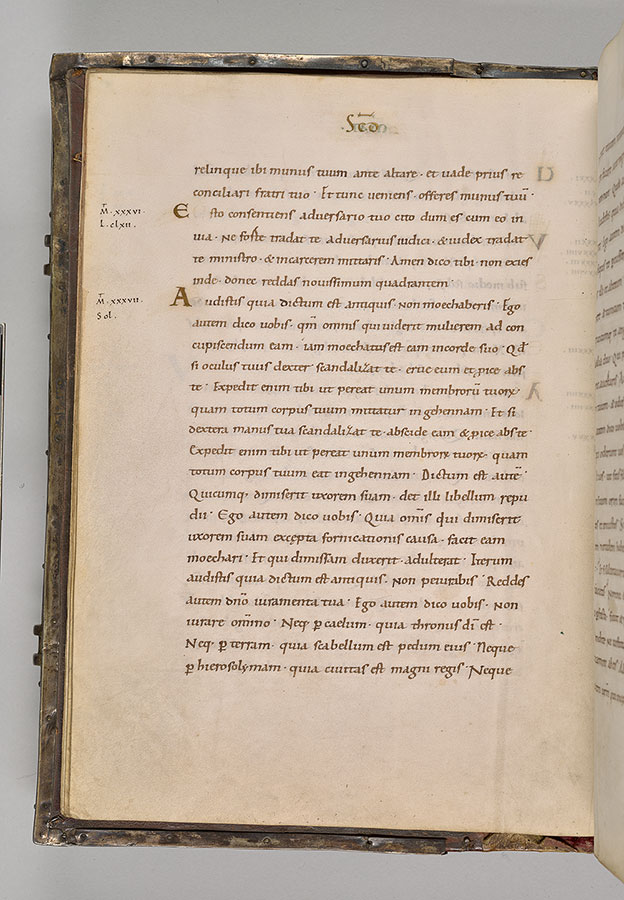 Scd
relinque ibi munus tuum ante altare · et uade prius re
conciliari fratri tuo · Et tunc veniens · offeres munus tuū ·
M̄ · xxxvi
L · clxii ·
Esto consentiens adversario tuo cito dum es cum eo in
uia · Ne forte tradat te adversarius iudici · & iudex tradat
te ministro · & incarcerem mittaris · Amen dico tibi · non exies
inde · donec reddas nouissimum quadrantem ·
M̄ · xxxvii ·
Sol ·
Audistis quia dictum est antiquis · Non moechaberis · Ego
autem dico uobis · qm̄ omnis qui uiderit mulierem ad con
cupiscendum eam · iam moechatus est eam in corde suo · Qd̄
si oculus tuus dexter scandalizat te · erue eum et ꝓice abs
te · Expedit enim tibi ut pereat unum membrorū tuorꝝ
quam totum corpus tuum mittatur in gehennam · Et si
dextera manus tua scandalizat te · abscide eam & ꝓice abs te ·
Expedit enim tibi ut pereat unum membrorꝝ tuorꝝ · quam
totum corpus tuum eat in gehennam · Dictum est autē ·
Quicumq; dimiserit uxorem suam · det illi libellum repu
dii · Ego autem dico uobis · Quia om̄is qui dimiserit
uxorem suam excepta fornicationis causa · facit eam
moechari · Et qui dimissam duxerit · adulterat · Iterum
audistis quia dictum est antiquis · Non peiurabis · Reddes
autem dn̄o iuramenta tua · Ego autem dico uobis · Non
iurare om̄ino · Neq; ꝑ caelum · quia thronus dī est ·
Neq; ꝑ terram · quia scabellum est pedum eius · Neque
ꝑ hierosolymam · quia ciuitas est magni regis · Neque